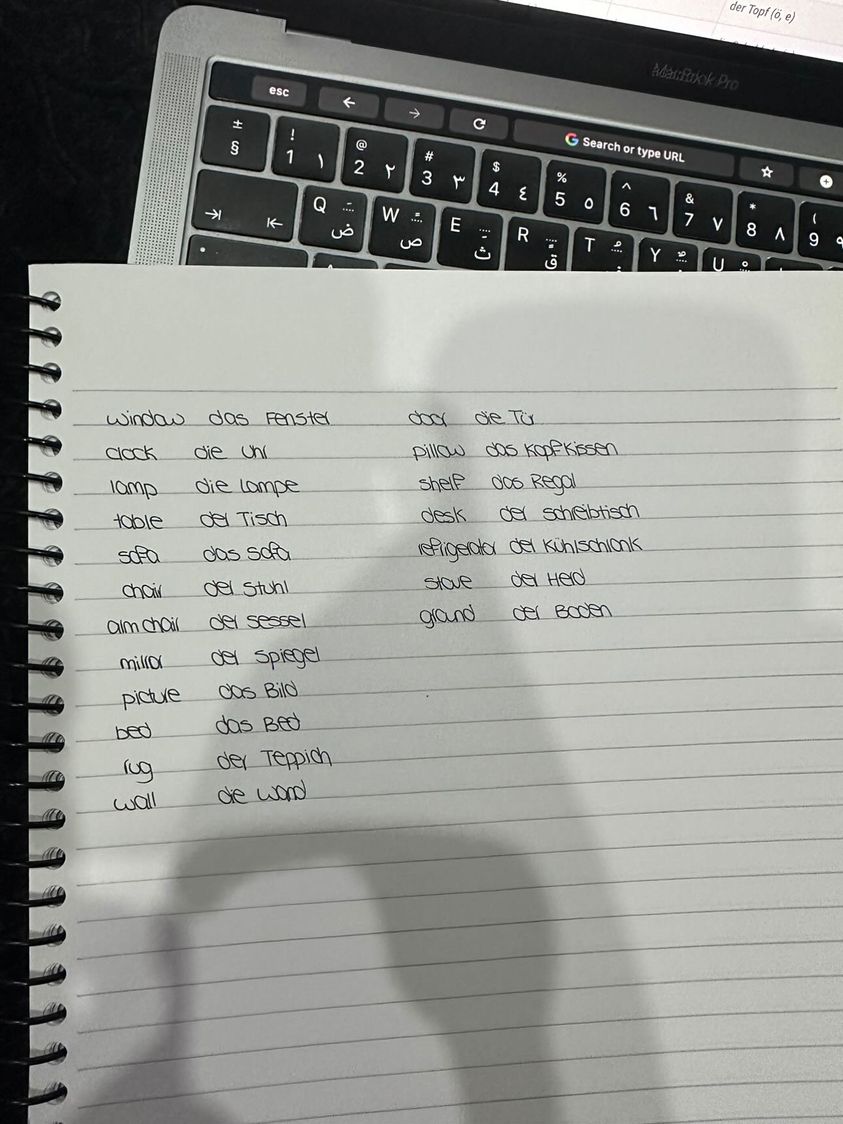 der Topf (ö, e)
MacBook Pro
esc
Search or type URL
± § ! 1 ١ @ 2 ٢ # 3 ٣ $ 4 ٤ % 5 ٥ ^ 6 ٦ & 7 ٧ * 8 ٨ ( 9 ٩
Q ض W ص E ث R ق T Y U
window das Fenster
clock die Uhr
lamp die Lampe
table der Tisch
sofa das Sofa
chair der Stuhl
armchair der Sessel
mirror der Spiegel
picture das Bild
bed das Bed
rug der Teppich
wall die Wand
door die Tür
pillow das Kopfkissen
shelf das Regal
desk der Schreibtisch
refrigerator der Kühlschrank
stove der Herd
ground der Boden